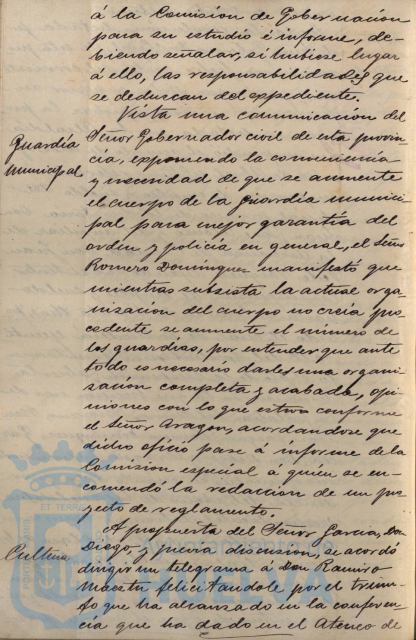 á la Comision de Gobernación
para su estudio é informe, de-
biendo señalar, si hubiese lugar
á ello, las responsabilidades que
se deduzcan del expediente.
Guardia
municipal
Vista una comunicacion del
Señor Gobernador civil de esta provin-
cia, exponiendo la conveniencia
y necesidad de que se aumente
el cuerpo de la guardia munici-
pal para mejor garantía del
orden y policía en general, el Señor
Romero Dominguez manifestó que
mientras subsista la actual orga-
nización del cuerpo no creía pro-
cedente se aumente el número de
los guardias, por entender que ante
todo es necesario darles una organi-
zación completa y acabada, opi-
niones con lo que estuvo conforme
el Señor Aragon, acordandose que
dicho oficio pase á informe de la
Comision especial á quien se en-
comendó la redaccion de un pro-
yecto de reglamento.
Cultura
A propuesta del Señor Garcia, Don
Diego, y previa discusion, se acordó
dirigir un telegrama á Don Ramiro
Maeztu felicitandole por el triun-
fo que ha alcanzado en la conferen-
cia que ha dado en el Ateneo de
ET TERRÆ